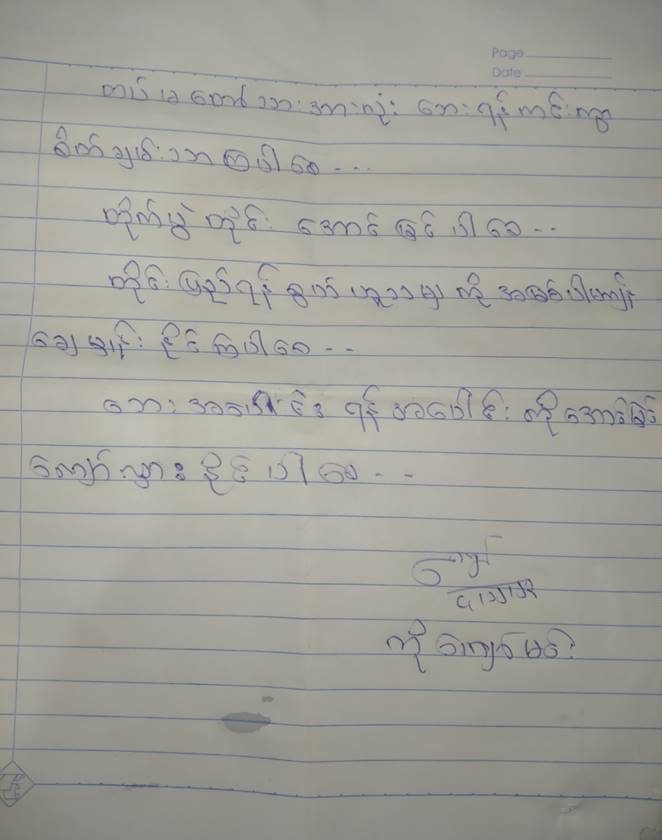 Page
Date
တပ်မတော်သားအားလုံး ဘေးရန်ကင်းကွာ
စိတ်ချမ်းသာကြပါစေ---
တိုက်ပွဲတိုင်း အောင်မြင်ပါစေ--
တိုင်းပြည်ရန်စွယ်ဟူသမျှကို အမြစ်ပါမကျန်
ချေမှုန်းနိုင်ကြပါစေ--
ဘေးအပေါင်း ရန်အပေါင်းကိုအောင်မြင်
ကျော်လွှားနိုင်ပါစေ--
ကိုကျော်မင်း